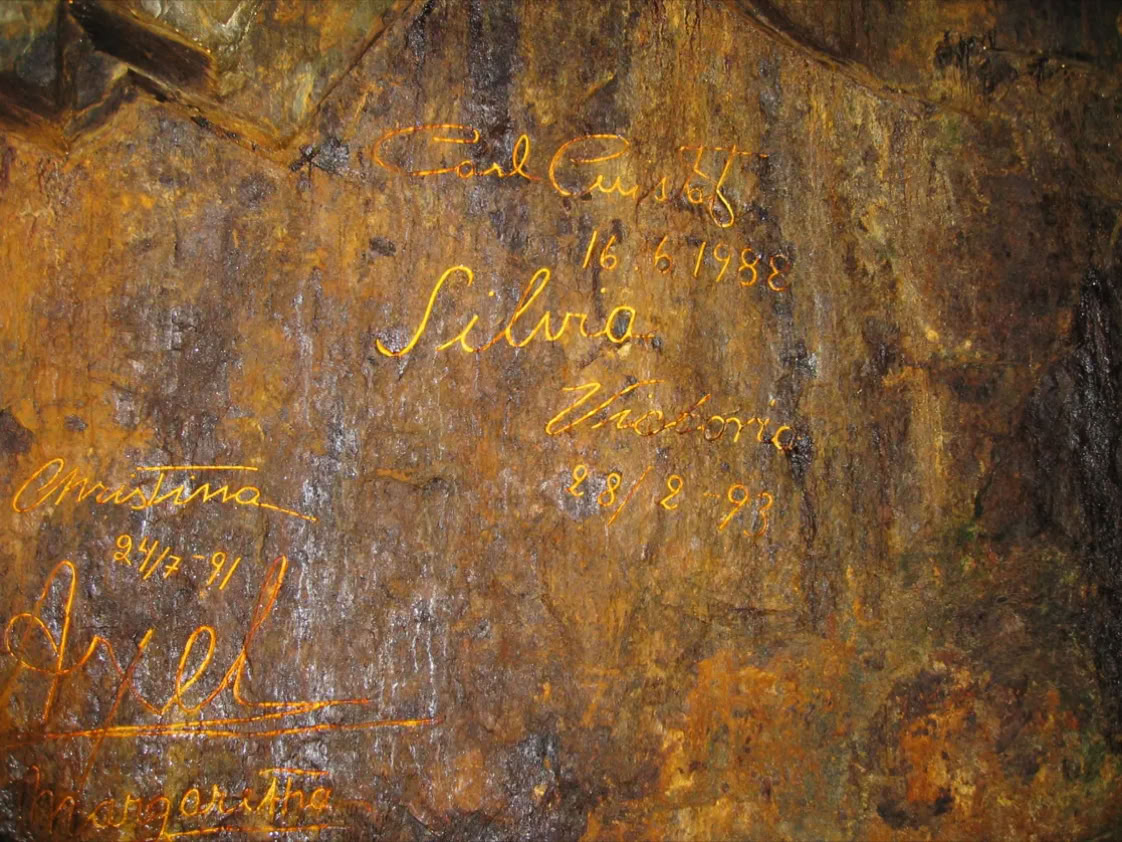 Carl Gustaf
16.6 1988
Silvia
Victoria
28/2-93
Christina
24/7-91
Axel
Margaretha